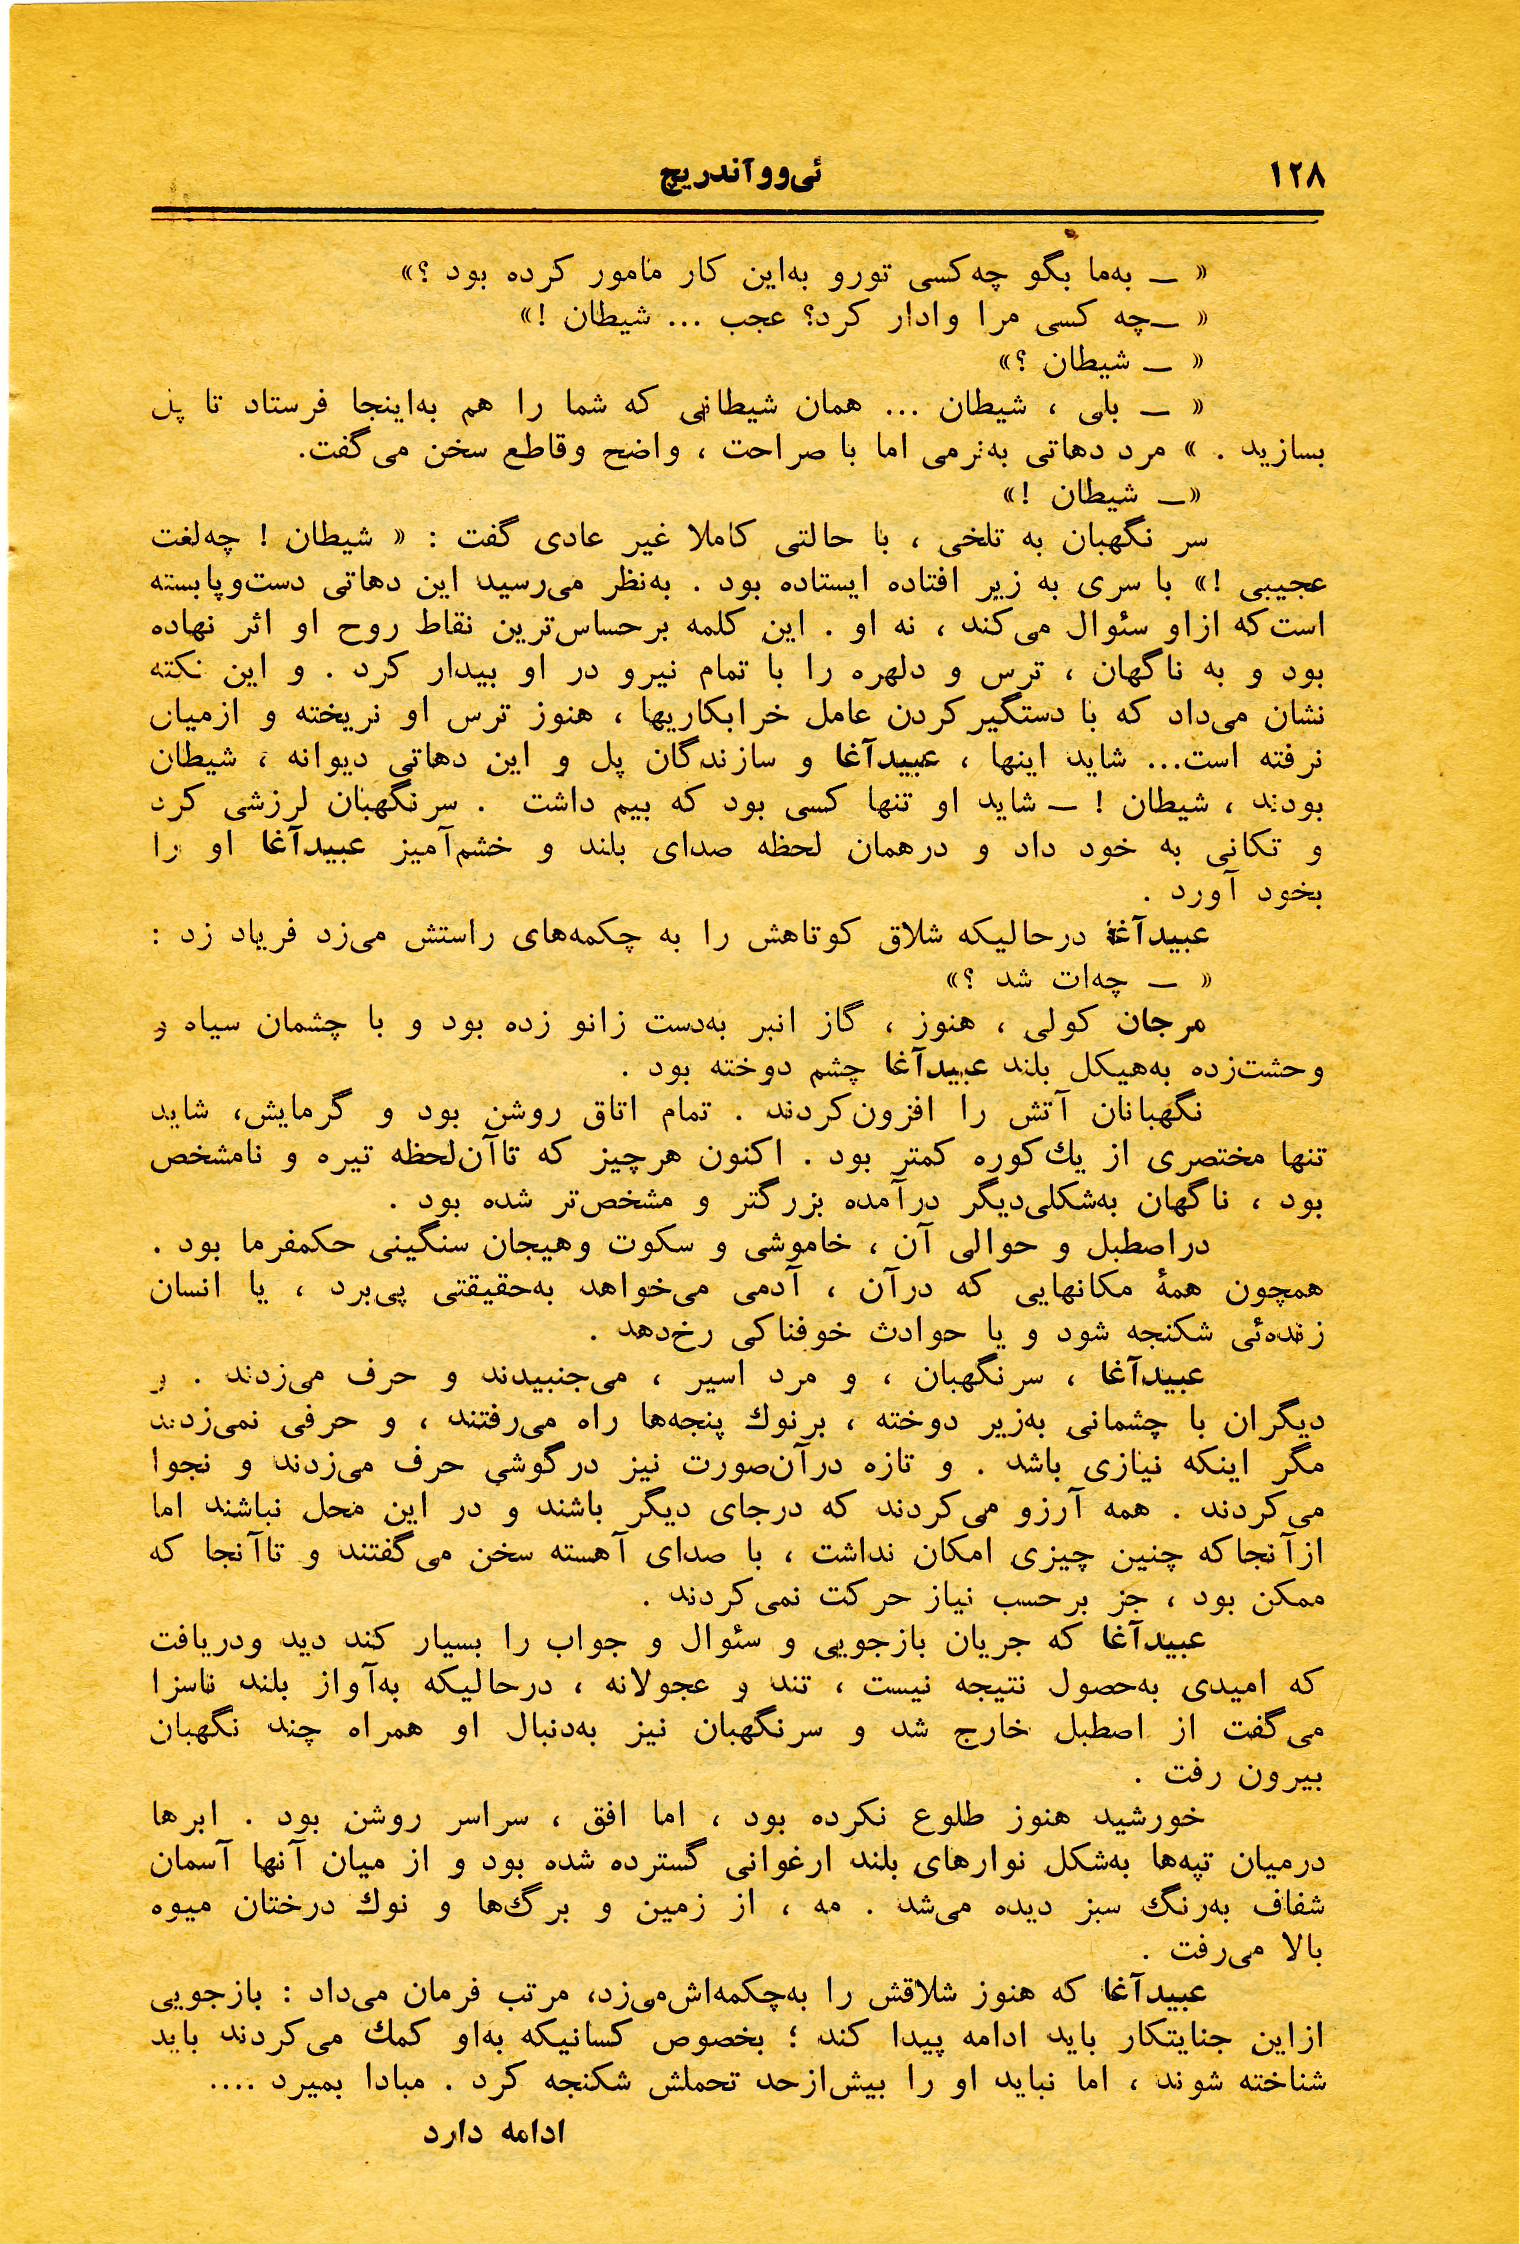 ۱۲۸
ئی‌ووآندریچ
« ــ به‌ما بگو چه‌کسی تورو به‌این کار مامور کرده بود ؟»
« ــچه کسی مرا وادار کرد؟ عجب ... شیطان !»
« ــ شیطان ؟»
« ــ بلی ، شیطان ... همان شیطانی که شما را هم به‌اینجا فرستاد تا پل
بسازید . » مرد دهاتی به‌نرمی اما با صراحت ، واضح وقاطع سخن می‌گفت.
«ــ شیطان !»
سر نگهبان به تلخی ، با حالتی کاملا غیر عادی گفت : « شیطان ! چه‌لغت
عجیبی !» با سری به زیر افتاده ایستاده بود . به‌نظر می‌رسید این دهاتی دست‌وپابسته
است‌که ازاو سئوال می‌کند ، نه او . این کلمه برحساس‌ترین نقاط روح او اثر نهاده
بود و به ناگهان ، ترس و دلهره را با تمام نیرو در او بیدار کرد . و این نکته
نشان می‌داد که با دستگیرکردن عامل خرابکاریها ، هنوز ترس او نریخته و ازمیان
نرفته است... شاید اینها ، عبیدآغا و سازندگان پل و این دهاتی دیوانه ، شیطان
بودند ، شیطان ! ــ شاید او تنها کسی بود که بیم داشت . سرنگهبان لرزشی کرد
و تکانی به خود داد و درهمان لحظه صدای بلند و خشم‌آمیز عبیدآغا او را
بخود آورد .
عبیدآغا درحالیکه شلاق کوتاهش را به چکمه‌های راستش می‌زد فریاد زد :
« ــ چه‌ات شد ؟»
مرجان کولی ، هنوز ، گاز انبر به‌دست زانو زده بود و با چشمان سیاه و
وحشت‌زده به‌هیکل بلند عبیدآغا چشم دوخته بود .
نگهبانان آتش را افزون‌کردند . تمام اتاق روشن بود و گرمایش، شاید
تنها مختصری از یك‌کوره کمتر بود . اکنون هرچیز که تاآن‌لحظه تیره و نامشخص
بود ، ناگهان به‌شکلی‌دیگر درآمده بزرگتر و مشخص‌تر شده بود .
دراصطبل و حوالی آن ، خاموشی و سکوت وهیجان سنگینی حکمفرما بود .
همچون همهٔ مکانهایی که درآن ، آدمی می‌خواهد به‌حقیقتی پی‌برد ، یا انسان
زنده‌ئی شکنجه شود و یا حوادث خوفناکی رخ‌دهد .
عبیدآغا ، سرنگهبان ، و مرد اسیر ، می‌جنبیدند و حرف می‌زدند . و
دیگران با چشمانی به‌زیر دوخته ، برنوك پنجه‌ها راه می‌رفتند ، و حرفی نمی‌زدند
مگر اینکه نیازی باشد . و تازه درآن‌صورت نیز درگوشی حرف می‌زدند و نجوا
می‌کردند . همه آرزو می‌کردند که درجای دیگر باشند و در این محل نباشند اما
ازآنجاکه چنین چیزی امکان نداشت ، با صدای آهسته سخن می‌گفتند و تاآنجا که
ممکن بود ، جز برحسب نیاز حرکت نمی‌کردند .
عبیدآغا که جریان بازجویی و سئوال و جواب را بسیار کند دید ودریافت
که امیدی به‌حصول نتیجه نیست ، تند و عجولانه ، درحالیکه به‌آواز بلند ناسزا
می‌گفت از اصطبل خارج شد و سرنگهبان نیز به‌دنبال او همراه چند نگهبان
بیرون رفت .
خورشید هنوز طلوع نکرده بود ، اما افق ، سراسر روشن بود . ابرها
درمیان تپه‌ها به‌شکل نوارهای بلند ارغوانی گسترده شده بود و از میان آنها آسمان
شفاف به‌رنگ سبز دیده می‌شد . مه ، از زمین و برگ‌ها و نوك درختان میوه
بالا می‌رفت .
عبیدآغا که هنوز شلاقش را به‌چکمه‌اش‌می‌زد، مرتب فرمان می‌داد : بازجویی
ازاین جنایتکار باید ادامه پیدا کند ؛ بخصوص کسانیکه به‌او کمك می‌کردند باید
شناخته شوند ، اما نباید او را بیش‌ازحد تحملش شکنجه کرد . مبادا بمیرد ....
ادامه دارد